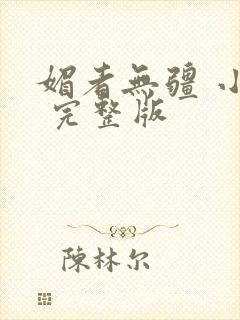 媚者無疆 小
完整版
陳林尔